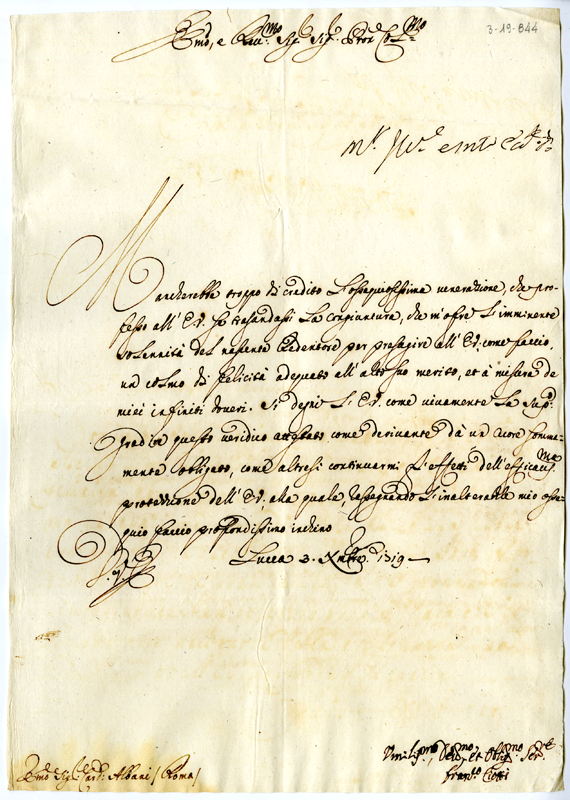 3-19-844
Em.o, e Rev.mo Sig.r Sig.r Pron Col.mo
Mancherebbe troppo di credito l'ossequiosissima venerazione, che pro-
fesso all' E.V. se trasandassi la congiuntura, che m'ofre l'imminente
solennità del nascente Redentore per presagire all' E.V. come faccio,
un colmo di felicità adequato all' alto suo merito, et à misura de
miei infiniti doveri. Si degni l' E.V. come vivamente la sup.co
gradire questo veridico attestato come derivante dà un cuore somma-
mente obligato, come altresì continuarmi l'effetti dell' efficaciss.ma
protezzione dell' E.V., alla quale, rassegnando l'inalterabile mio osse-
quio faccio profondissimo inchino
Lucca 3. Xmbre 1719
Umiliss.mo, Dev.mo, et Oblig.mo Ser.re
Fran.co
Em.o Sig.r Card. Albani / Roma /